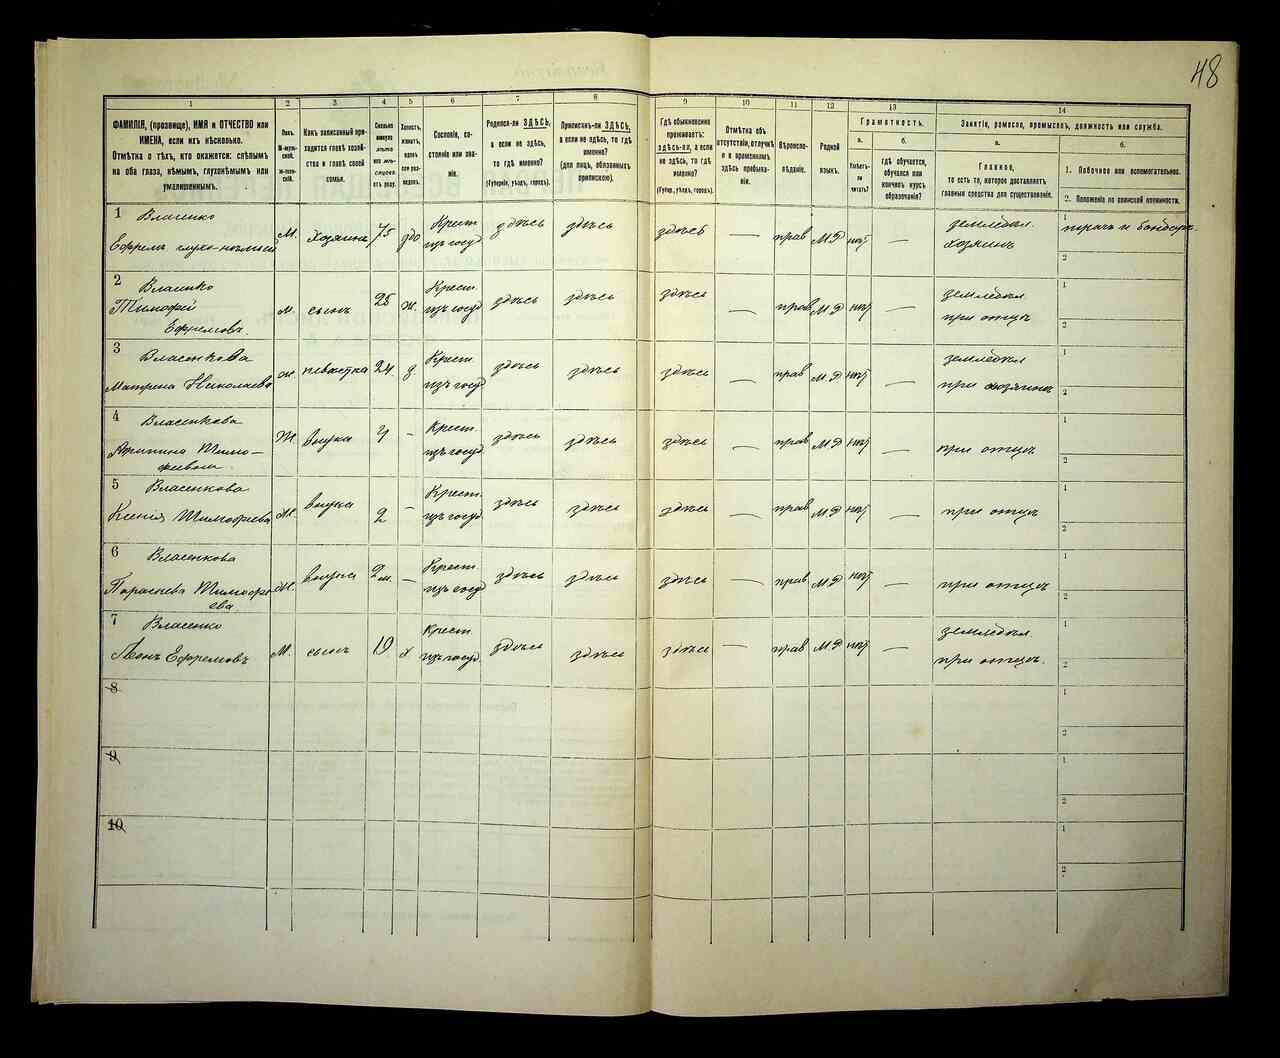 48
1
2
3
4
5
6
7
8
9
10
11
12
13
14
ФАМИЛІЯ, (прозвище), ИМЯ и ОТЧЕСТВО или
ИМЕНА, если ихъ нѣсколько.
Отмѣтка о тѣхъ, кто окажется: слѣпымъ
на оба глаза, нѣмымъ, глухонѣмымъ или
умалишеннымъ.
Полъ.
М-мужской.
Ж-женскій.
Какъ записанный приходится главѣ хозяйства и главѣ своей
семьи.
Сколько
минуло
лѣтъ
или мѣсяцевъ
отъ роду.
Холостъ,
женатъ,
вдовъ
или разведенъ.
Сословіе, состояніе или званіе.
Родился-ли ЗДѢСЬ,
а если не здѣсь,
то гдѣ именно?
(Губернія, уѣздъ, городъ).
Приписанъ-ли ЗДѢСЬ,
а если не здѣсь, то гдѣ
именно?
(для лицъ, обязанныхъ
припискою).
Гдѣ обыкновенно
проживаетъ:
здѣсь-ли, а если
не здѣсь, то гдѣ
именно?
(Губер., уѣздъ, городъ).
Отмѣтка объ
отсутствіи, отлучкѣ
и о временномъ
здѣсь пребываніи.
Вѣроисповѣданіе.
Родной
языкъ.
Грамотность.
а.
б.
Умѣетъ-ли
читать?
гдѣ обучается,
обучался или
кончилъ курсъ
образованія?
Занятіе, ремесло, промыселъ, должность или служба.
а.
б.
Главное,
то есть то, которое доставляетъ
главныя средства для существованія.
1. Побочное или вспомогательное.
2. Положеніе по воинской повинности.
1 Власенко
Ефремъ глухо-нѣмый М. хозяинъ 75 вдо Крест. изъ госуд здѣсь здѣсь здѣсь — прав М.Р нѣтъ — земледѣл. хозяинъ
1
2
2 Власенко
Тимофей
Ефремовъ. м. сынъ 25 ж. Крест. изъ госуд здѣсь здѣсь здѣсь — прав М.Р нѣтъ — земледѣл при отцѣ
1
2
3 Власенкова
Матрена Николаева ж. невѣстка 24 Крест. изъ госуд здѣсь здѣсь здѣсь — прав М.Р нѣтъ — земледѣл при хозяинѣ
1
2
4 Власенкова
Агрипина Тимофѣева Ж. внука 4 – Крест. изъ госуд здѣсь здѣсь здѣсь — прав М.Р нѣтъ — при отцѣ
1
2
5 Власенкова
Ксенія Тимофѣева Ж. внука 2 – Крест. изъ госуд здѣсь здѣсь здѣсь — прав М.Р нѣтъ — при отцѣ
1
2
6 Власенкова
Параскева Тимофѣева Ж. внука 2 м. – Крест. изъ госуд здѣсь здѣсь здѣсь — прав М.Р нѣтъ — при отцѣ
1
2
7 Власенко
Леонъ Ефремовъ М. сынъ 19 х Крест. изъ госуд здѣсь здѣсь здѣсь — прав М.Р нѣтъ — земледѣл. при отцѣ.
1
2
8
1
2
9
1
2
10
1
2